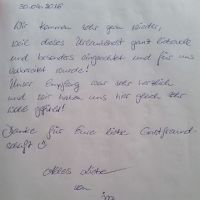 30.04.2016
Wir kommen sehr gern wieder,
weil dieses Urlaubsort ganz
und besonders eingerichtet und für uns
dekoriert wurde!
Unser Empfang war sehr herzlich
und wir haben uns hier gleich sehr
wohl gefühlt!
Danke für Eure liebe Gastfreund-
schaft ☺
Alles Liebe
von